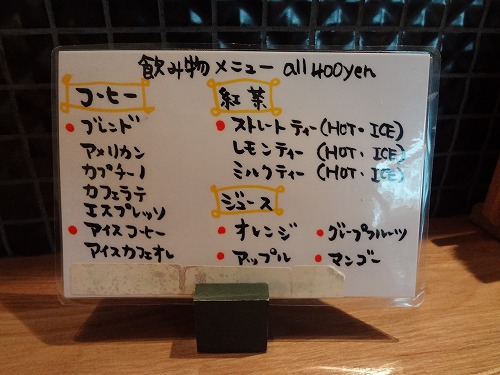 飲み物メニュー all 400yen
コーヒー
• ブレンド
アメリカン
カプチーノ
カフェラテ
エスプレッソ
• アイスコーヒー
アイスカフェオレ
紅茶
• ストレートティー(HOT・ICE)
レモンティー(HOT・ICE)
ミルクティー(HOT・ICE)
ジュース
• オレンジ • グレープフルーツ
• アップル • マンゴー